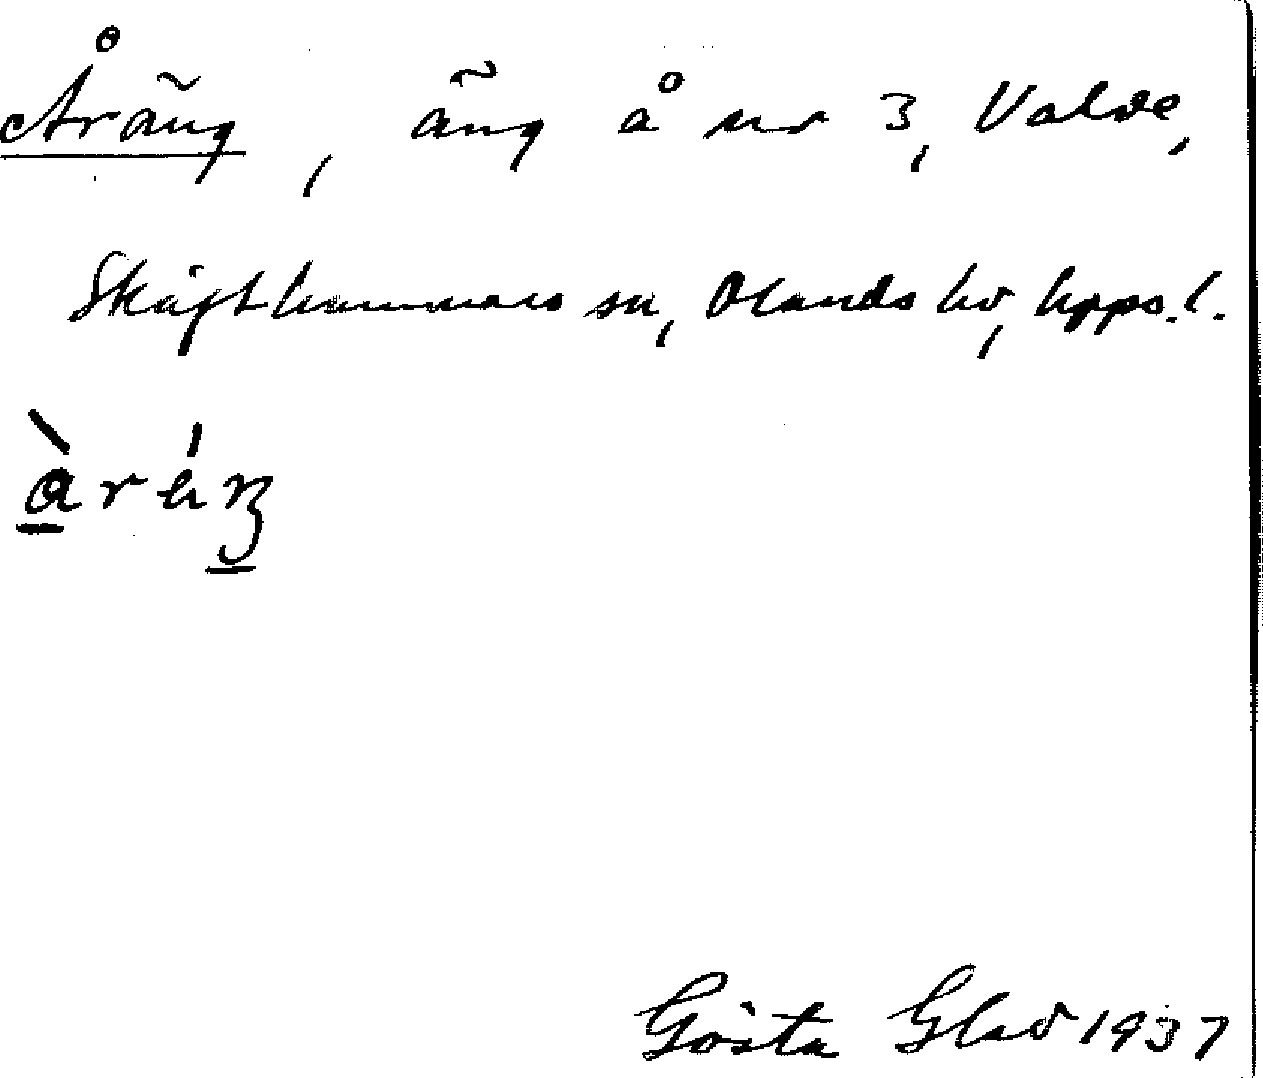 Åräng, äng å nr 3, Valde,
Skäfthammars sn, Olands hd, Upps. l.
Gösta Glad 1937